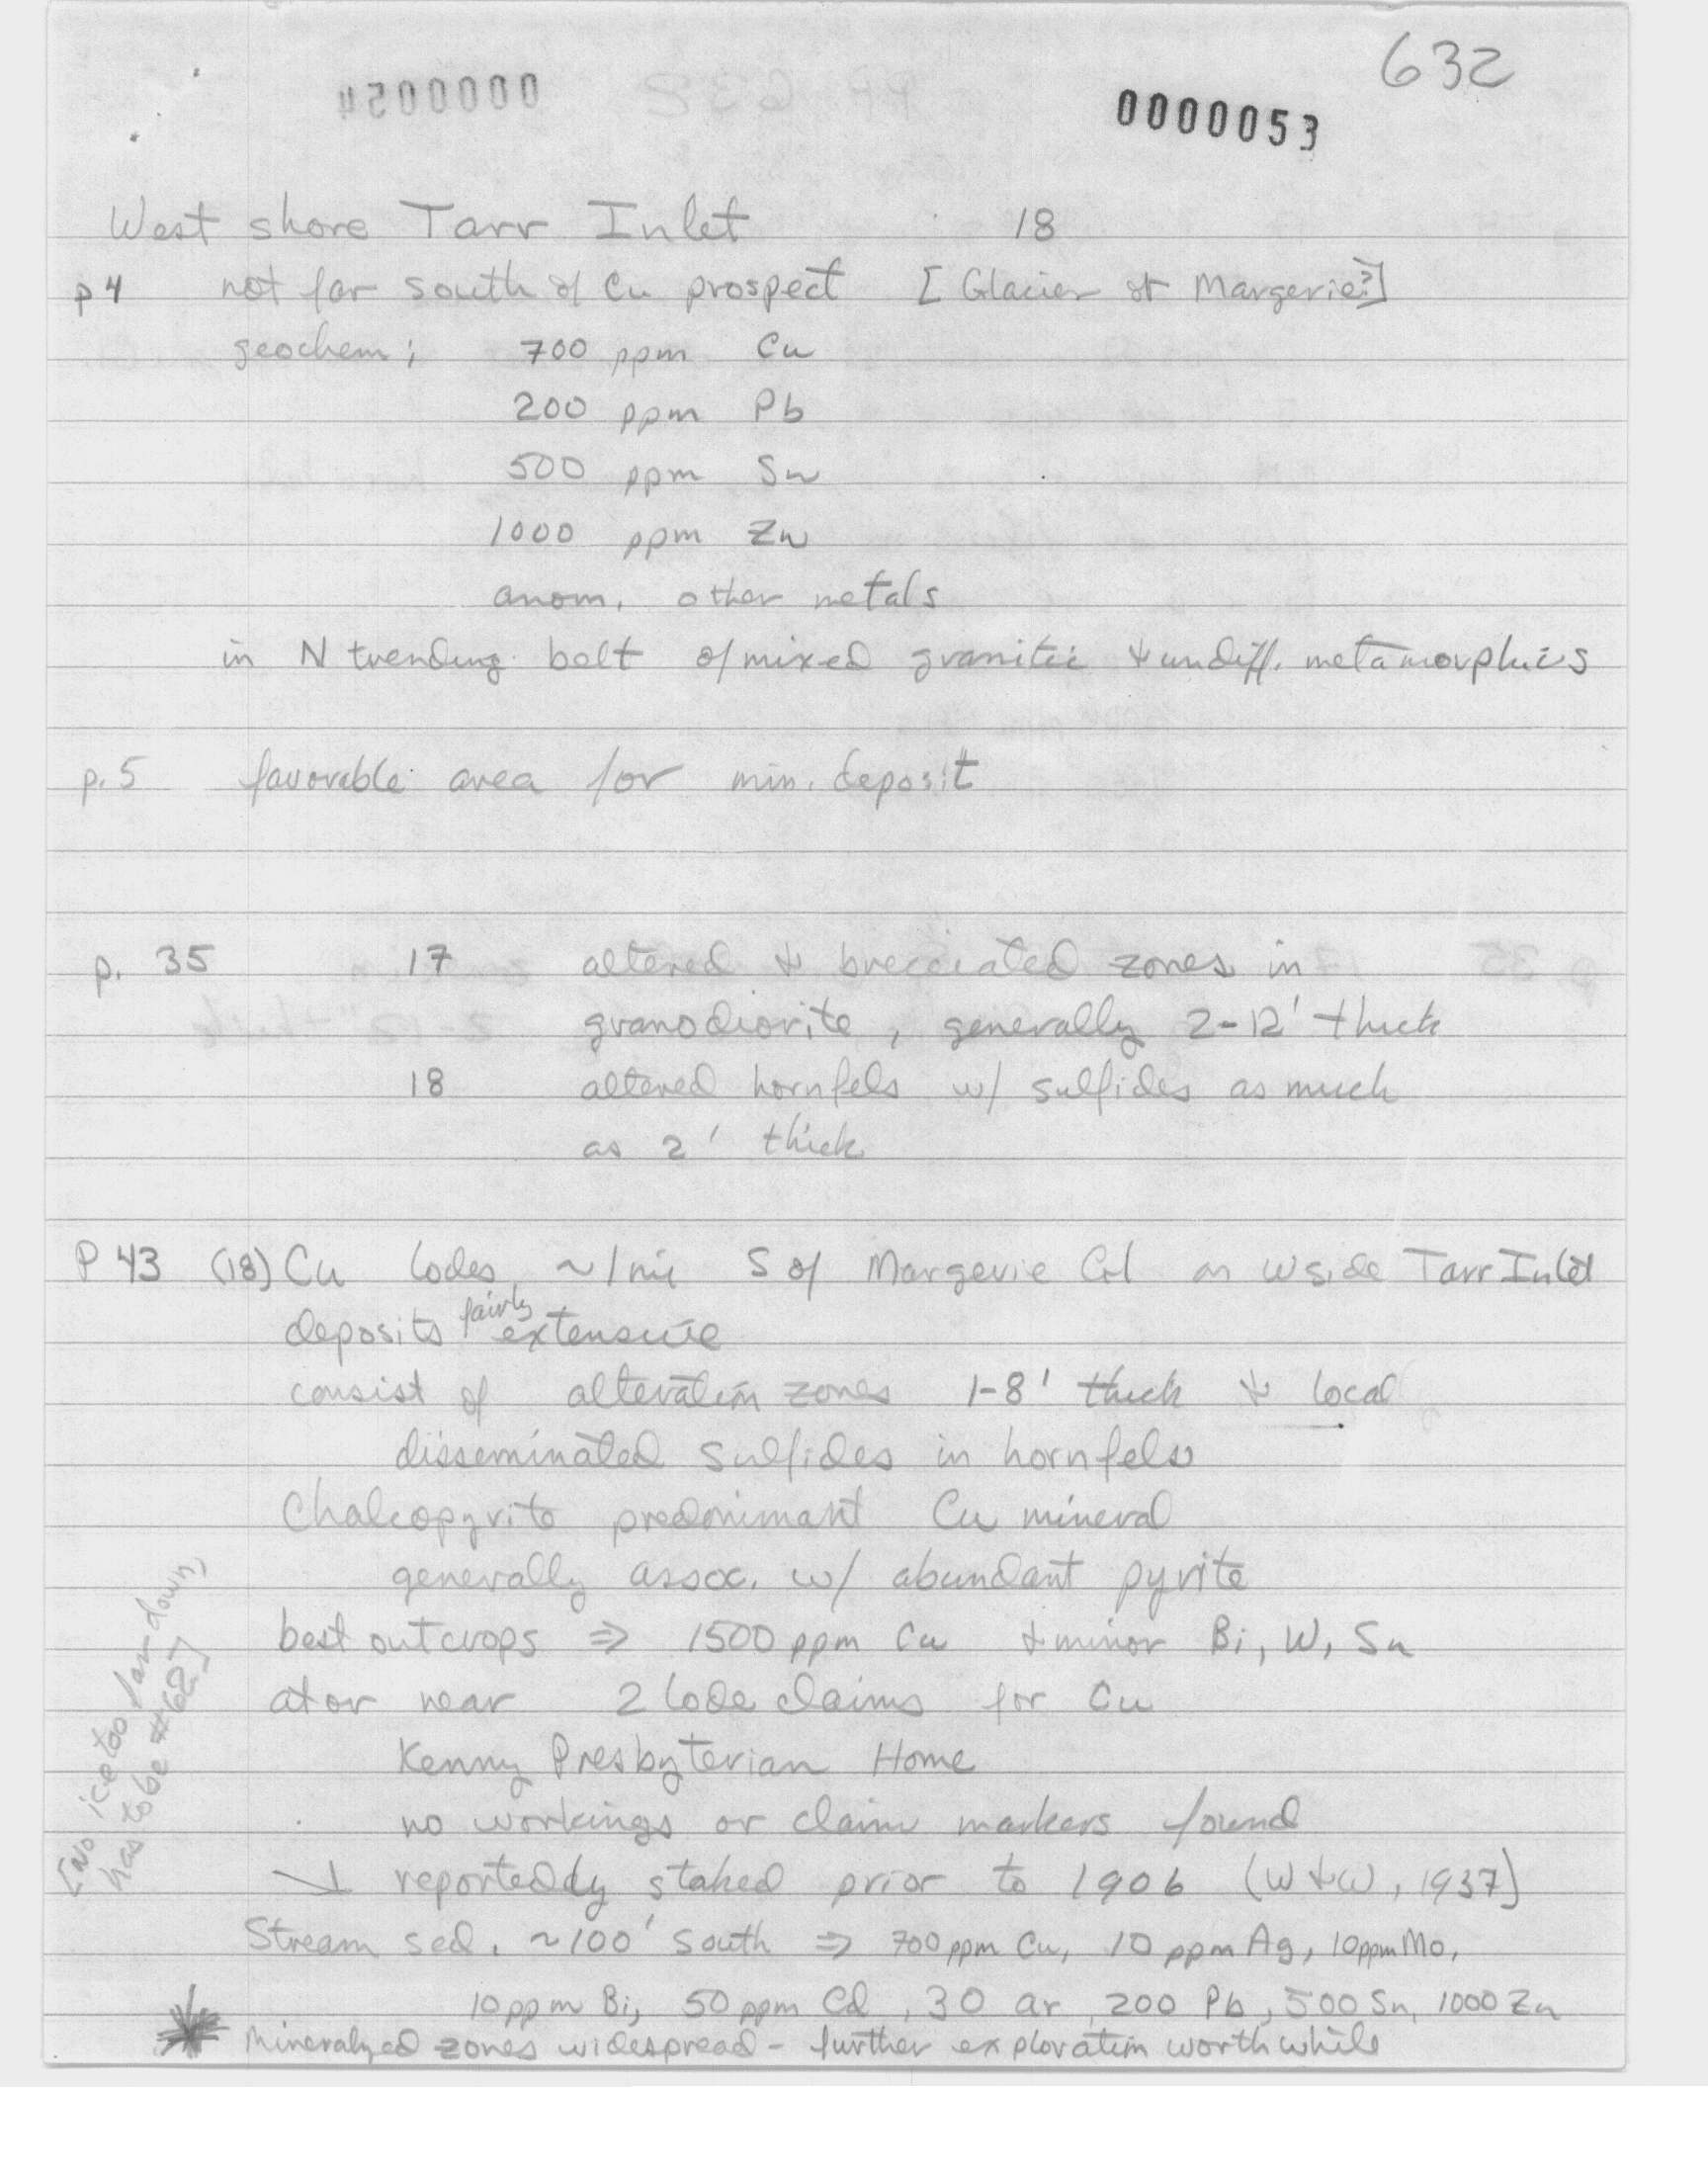 632
0000053
West shore Tarr Inlet 18
p 4 not far south of Cu prospect [Glacier at Margerie?]
geochem; 700 ppm Cu
200 ppm Pb
500 ppm Sn
1000 ppm Zn
anom. other metals
in N trending belt of mixed granitic & undiff. metamorphics
p. 5 favorable area for min. deposit
p. 35 17 altered & brecciated zones in
granodiorite, generally 2-12' thick
18 altered hornfels w/ sulfides as much
as 2' thick
P 43 (18) Cu lodes, ~1 mi S of Margerie Gl on W side Tarr Inlet
deposits fairly extensive
consist of alteration zones 1-8' thick & local
disseminated sulfides in hornfels
Chalcopyrite predominant Cu mineral
generally assoc. w/ abundant pyrite
best outcrops ⇒ 1500 ppm Cu & minor Bi, W, Sn
at or near 2 lode claims for Cu
Kenny Presbyterian Home
no workings or claim markers found
↘ reportedly staked prior to 1906 (W & W, 1937)
Stream sed. ~100' south ⇒ 700 ppm Cu, 10 ppm Ag, 10 ppm Mo,
10 ppm Bi, 50 ppm Cd, 30 ar, 200 Pb, 500 Sn, 1000 Zn
Mineralized zones widespread - further exploration worthwhile
[No ice too far down,
has to be #62?]